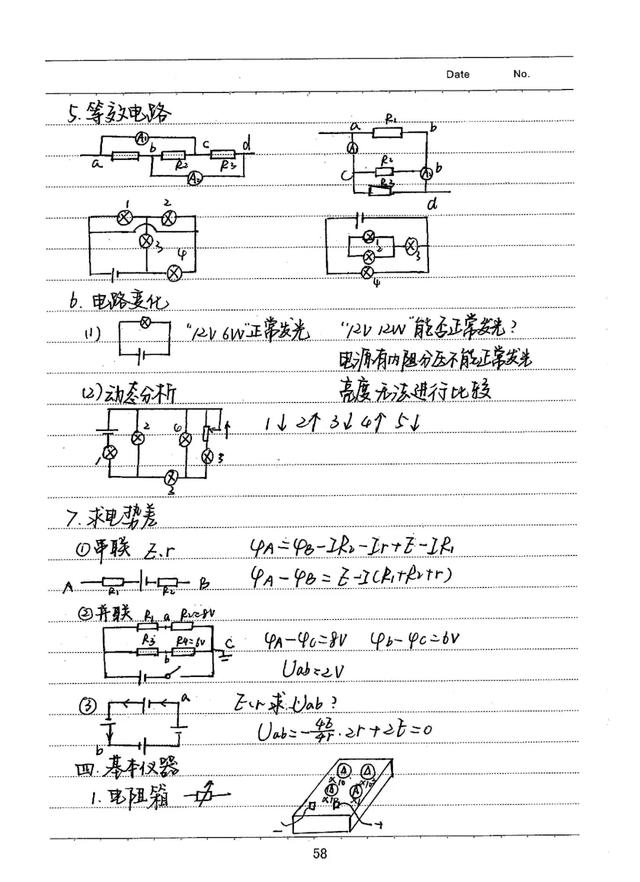 Date No.
5. 等效电路
A1 a b R2 c R3 d A2
a R1 b
A
c R2 b
R3 A2
d
1 2 3 4
1 2 3 4
6. 电路变化
(1) "12V 6W"正常发光 "12V 12W"能否正常发光?
电源有内阻分压不能正常发光
(2)动态分析 亮度无法进行比较
1↓ 2↑ 3↓ 4↑ 5↓
7. 求电势差
①串联 E.r φA=φB-IR2-Ir+E-IR1
A R1 R2 B φA-φB=E-I(R1+R2+r)
②并联 R1 a R2=8V
R3 b R4=6V C φA-φc=8V φb-φc=6V
Uab=2V
③ a b E.r 求 Uab?
Uab=-4E/4r·2r+2E=0
四. 基本仪器
1. 电阻箱
- +
58